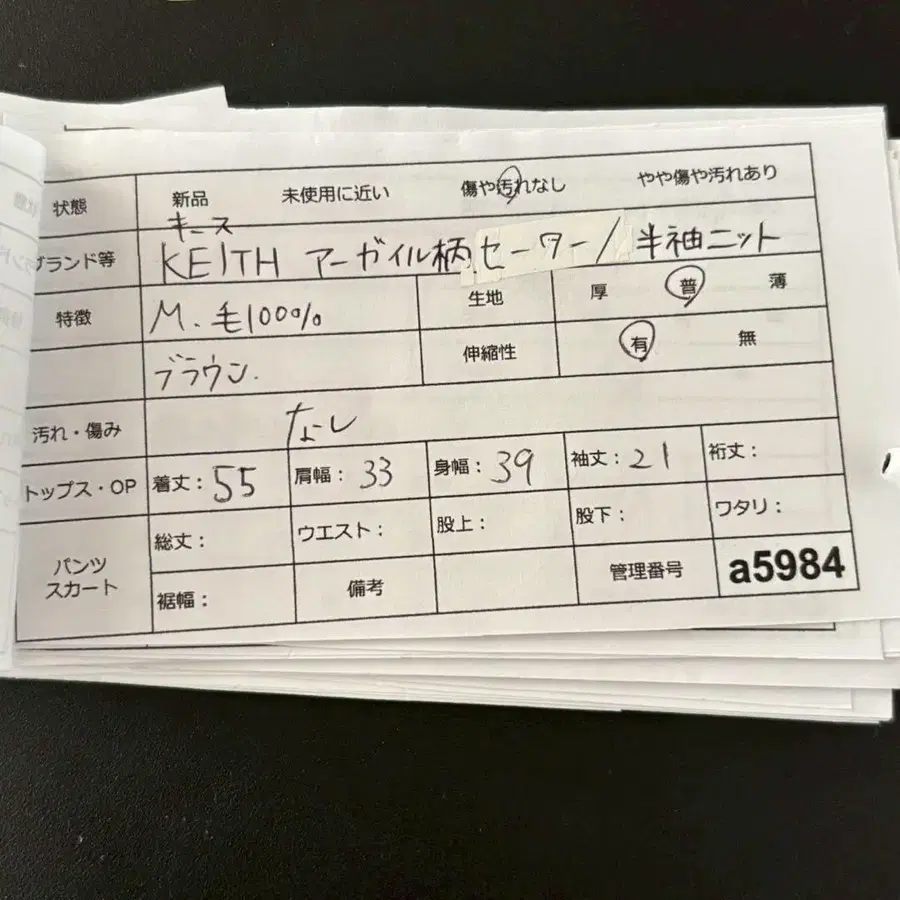 状態 新品 未使用に近い 傷や汚れなし やや傷や汚れあり
キース
ブランド等 KEITH アーガイル柄 セーター / 半袖ニット
特徴 M、毛100% 生地 厚 普 薄
ブラウン. 伸縮性 有 無
汚れ・傷み なし
トップス・OP 着丈: 55 肩幅: 33 身幅: 39 袖丈: 21 裄丈:
パンツ スカート
総丈: ウエスト: 股上: 股下: ワタリ:
裾幅: 備考 管理番号 a5984